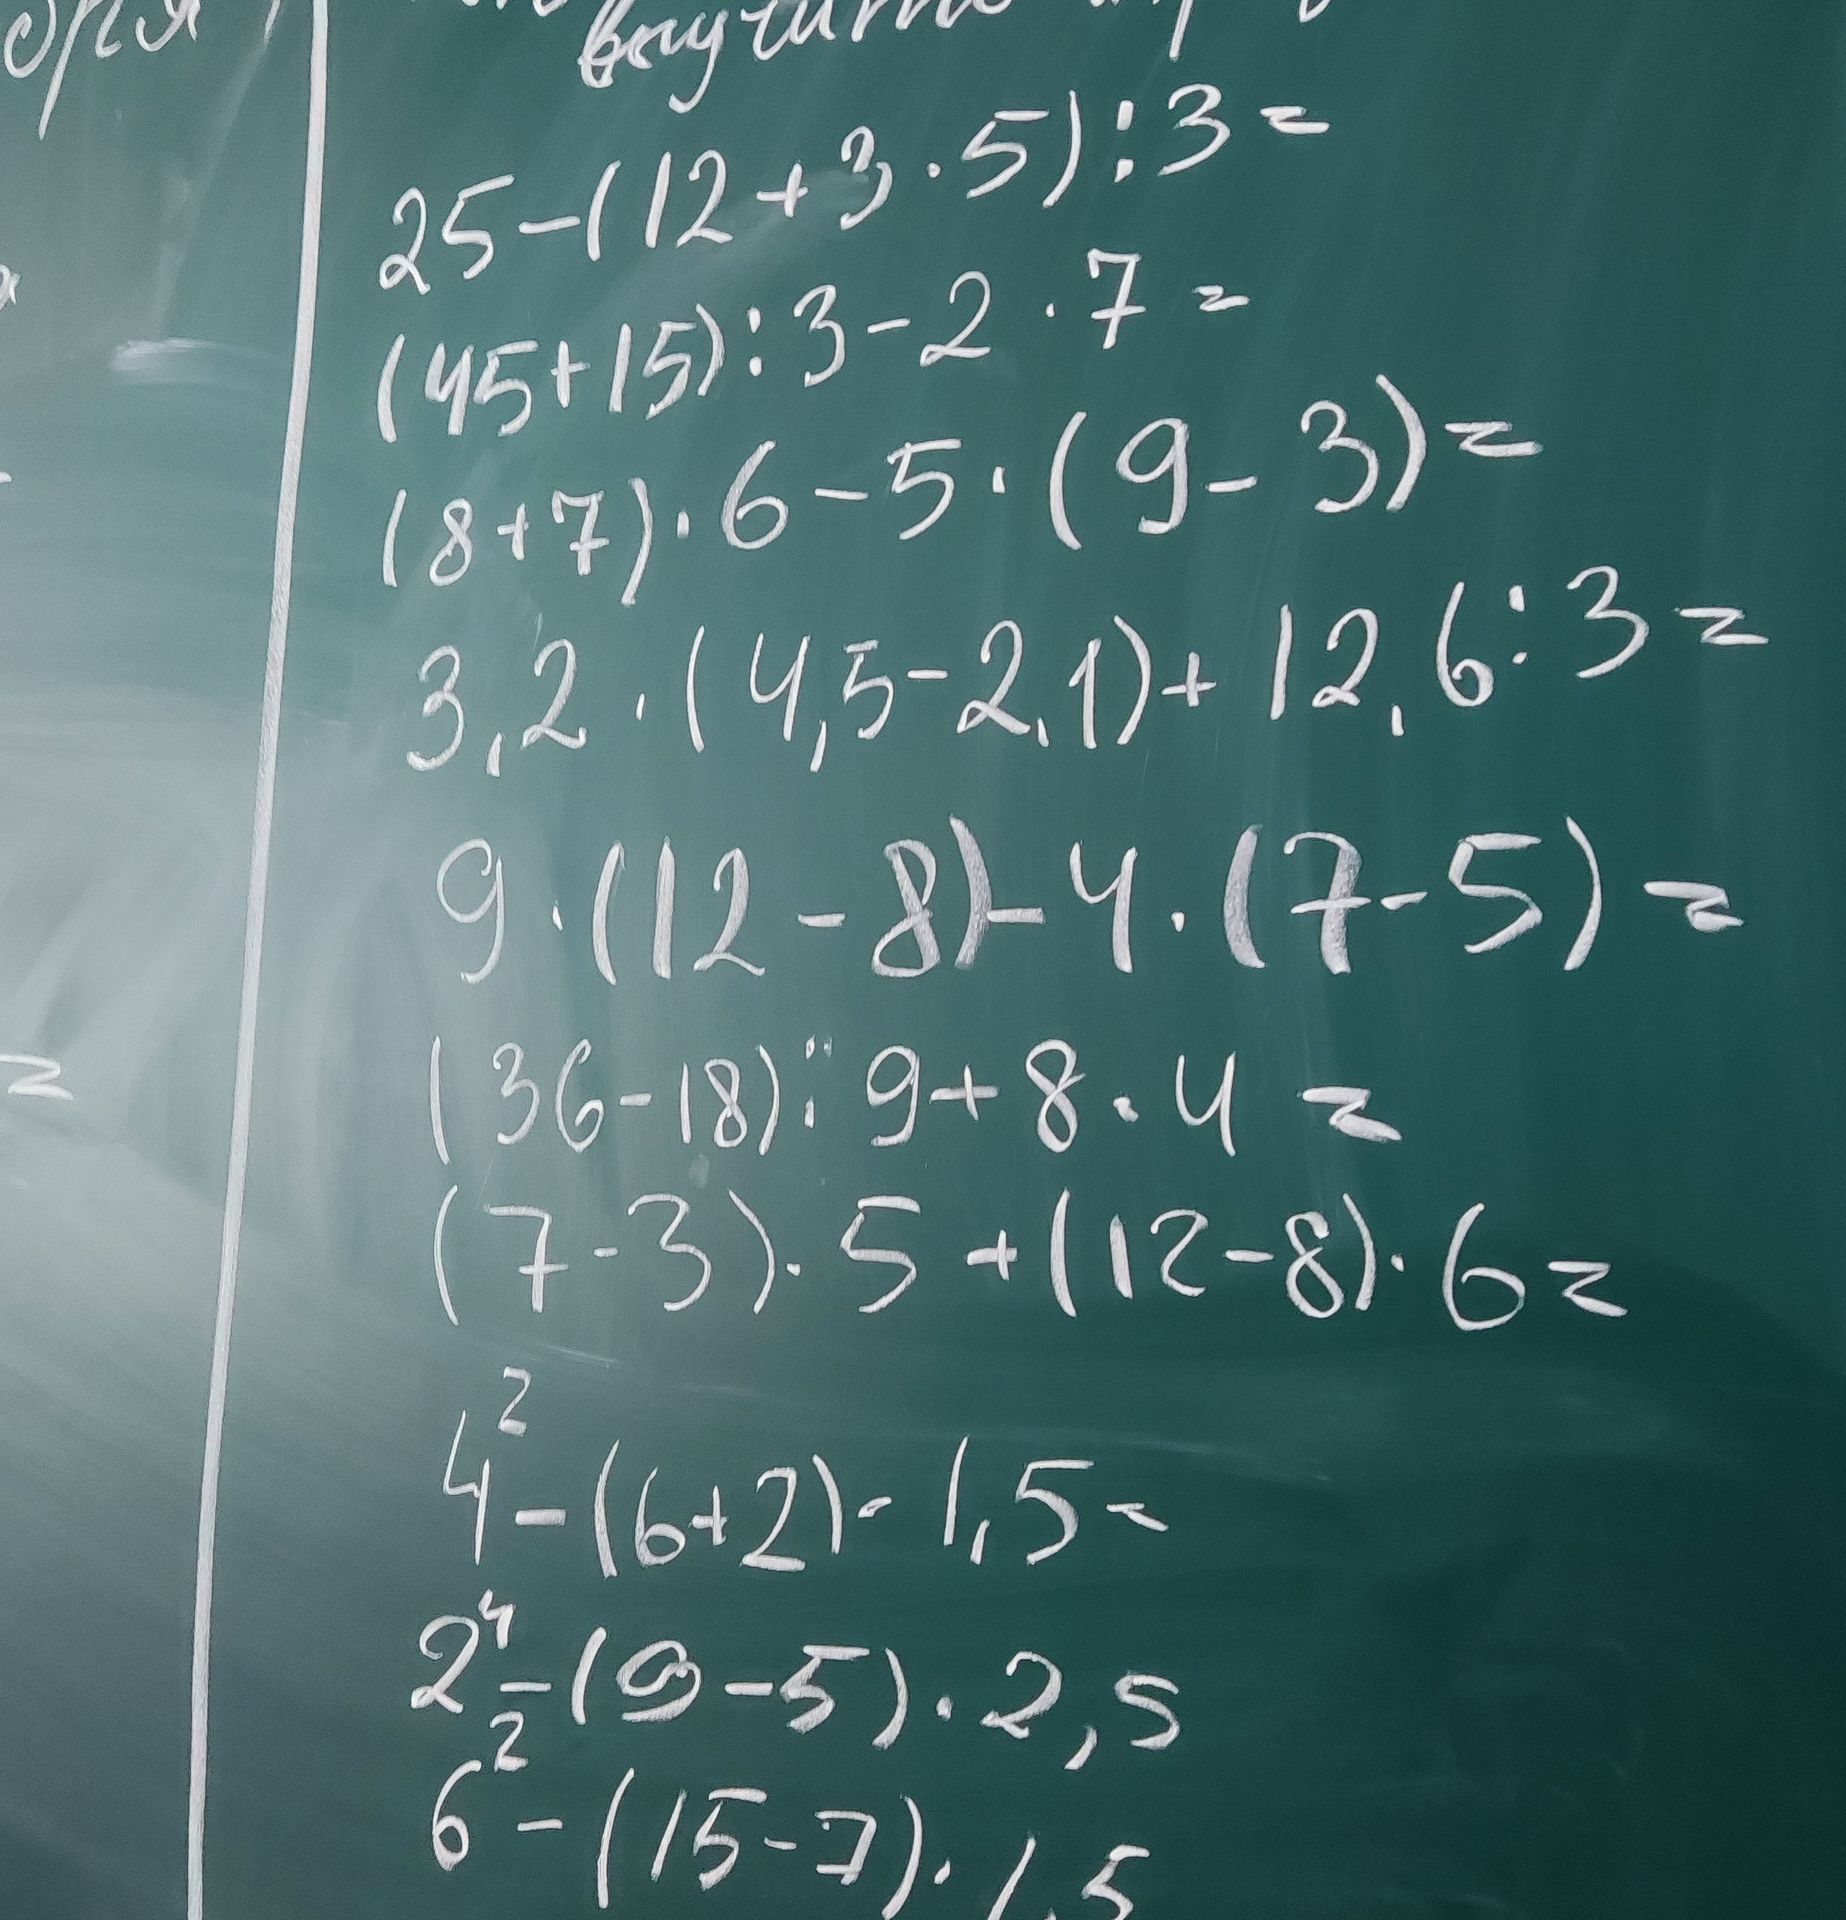 25-(12+3·5):3=
(45+15):3-2·7=
(8+7)·6-5·(9-3)=
3,2·(4,5-2,1)+12,6:3=
9·(12-8)-4·(7-5)=
(36-18):9+8·4=
(7-3)·5+(12-8)·6=
4²-(6+2)·1,5=
2⁴-(9-5)·2,5
6²-(15-7)·1,5